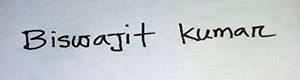 Biswajit Kumar